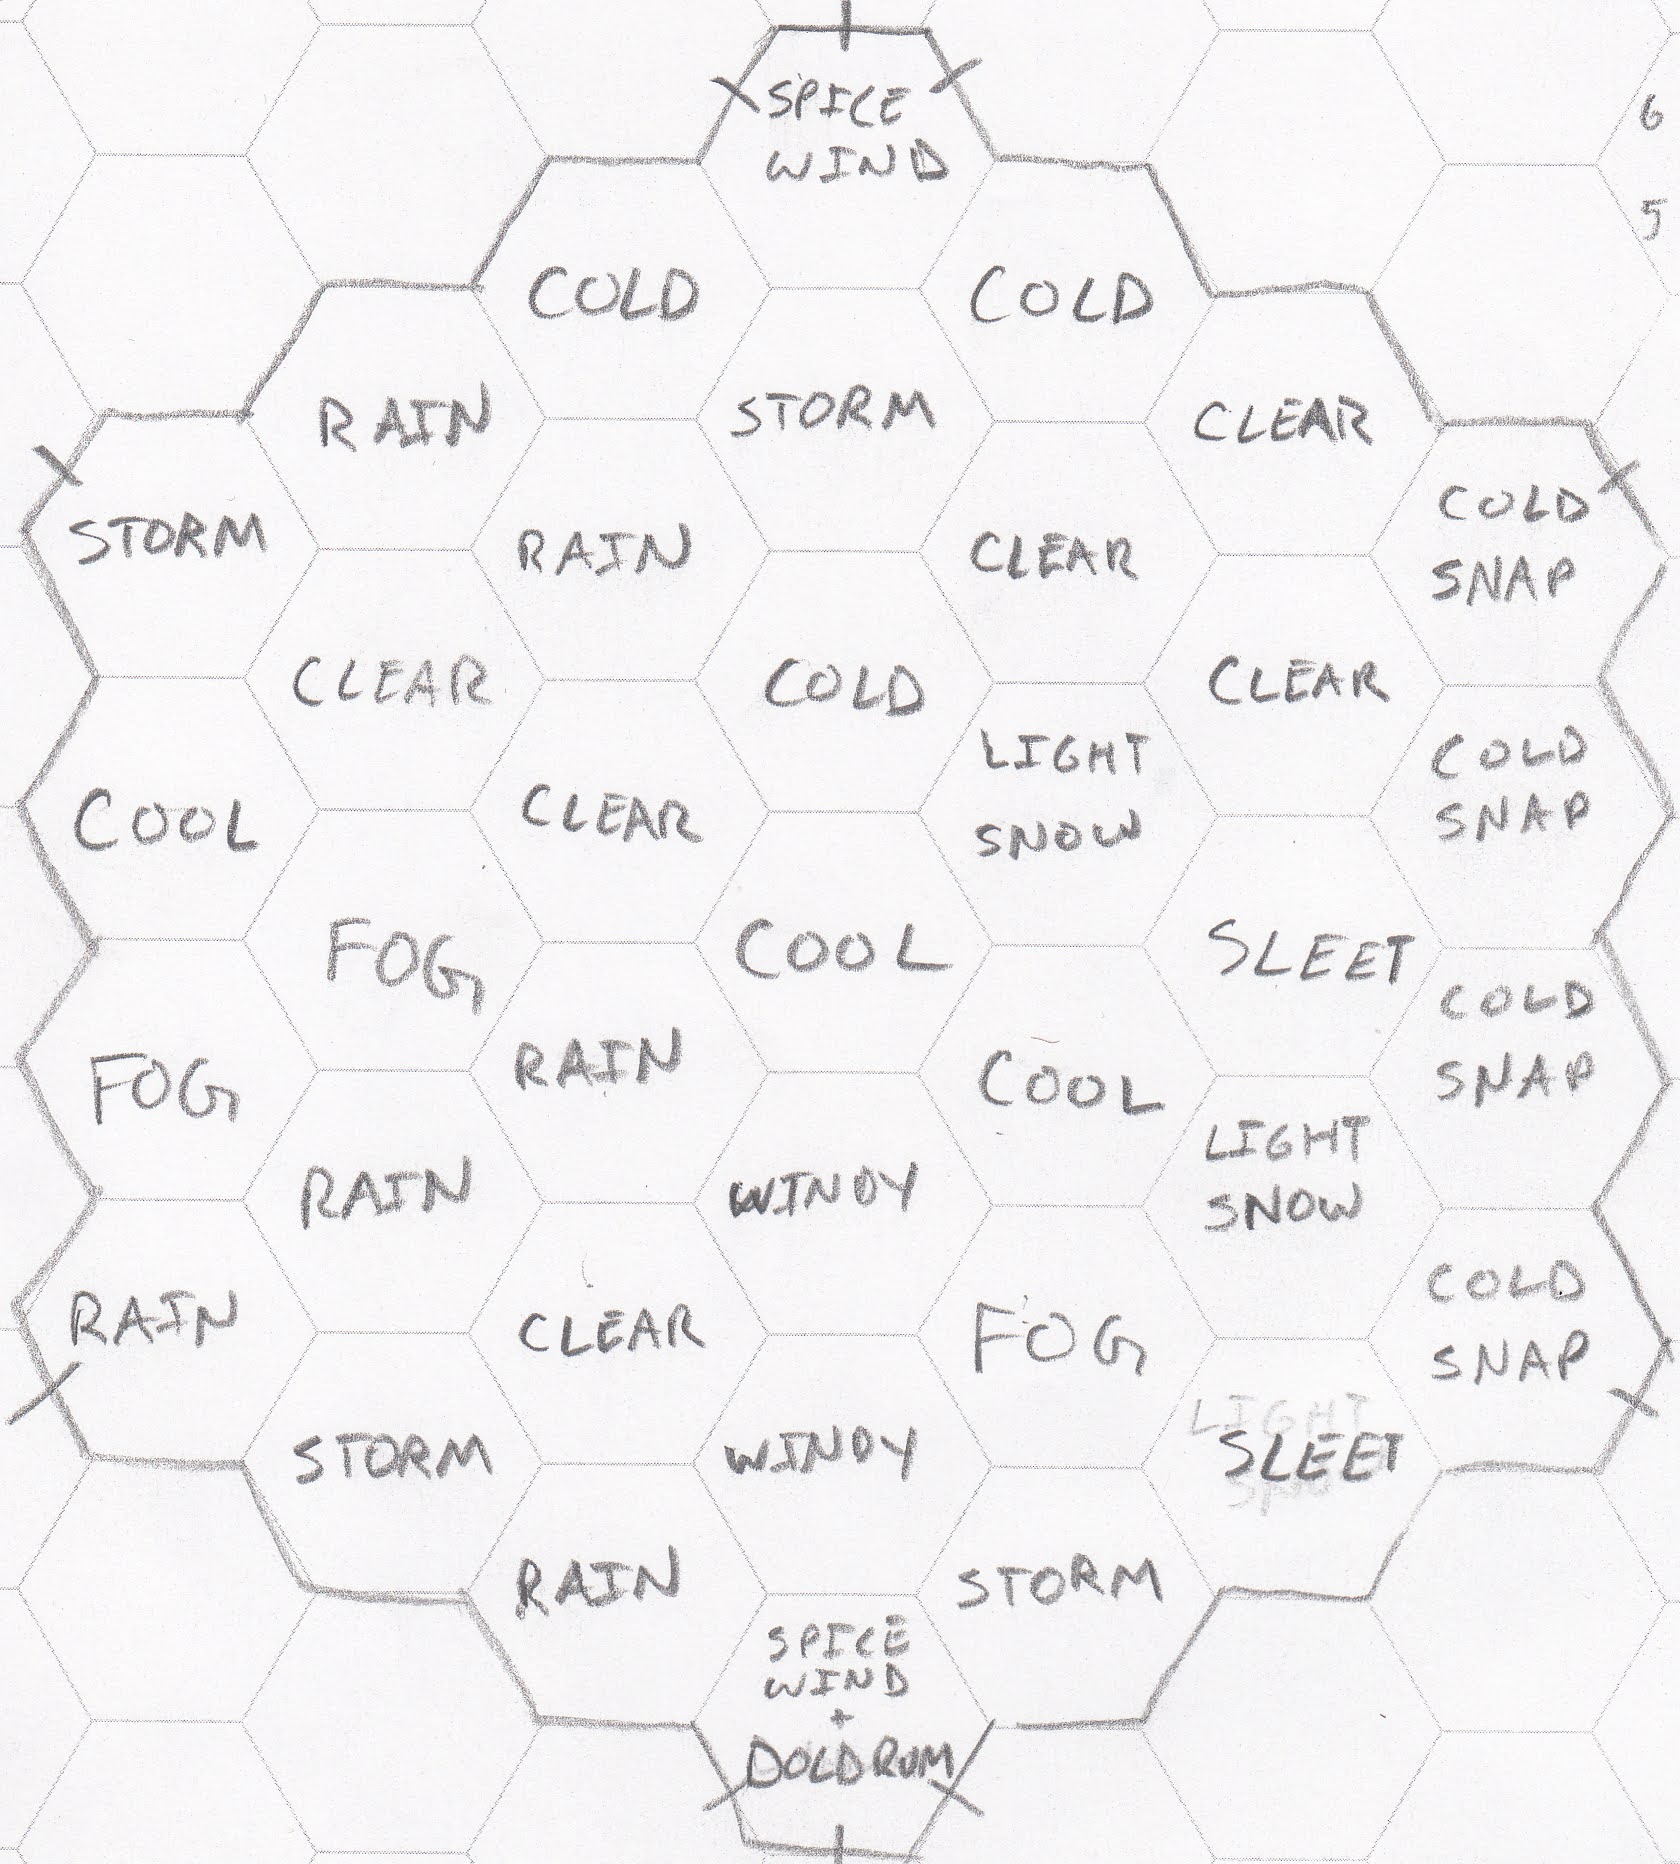 6
5
SPICE
WIND
COLD
COLD
RAIN
STORM
CLEAR
STORM
RAIN
CLEAR
COLD
SNAP
CLEAR
COLD
CLEAR
LIGHT
SNOW
COLD
SNAP
COOL
CLEAR
FOG
COOL
SLEET
COLD
SNAP
FOG
RAIN
COOL
LIGHT
SNOW
RAIN
WINDY
COLD
SNAP
RAIN
CLEAR
FOG
LIGHT
SLEET
STORM
WINDY
RAIN
STORM
SPICE
WIND
+
DOLDRUM